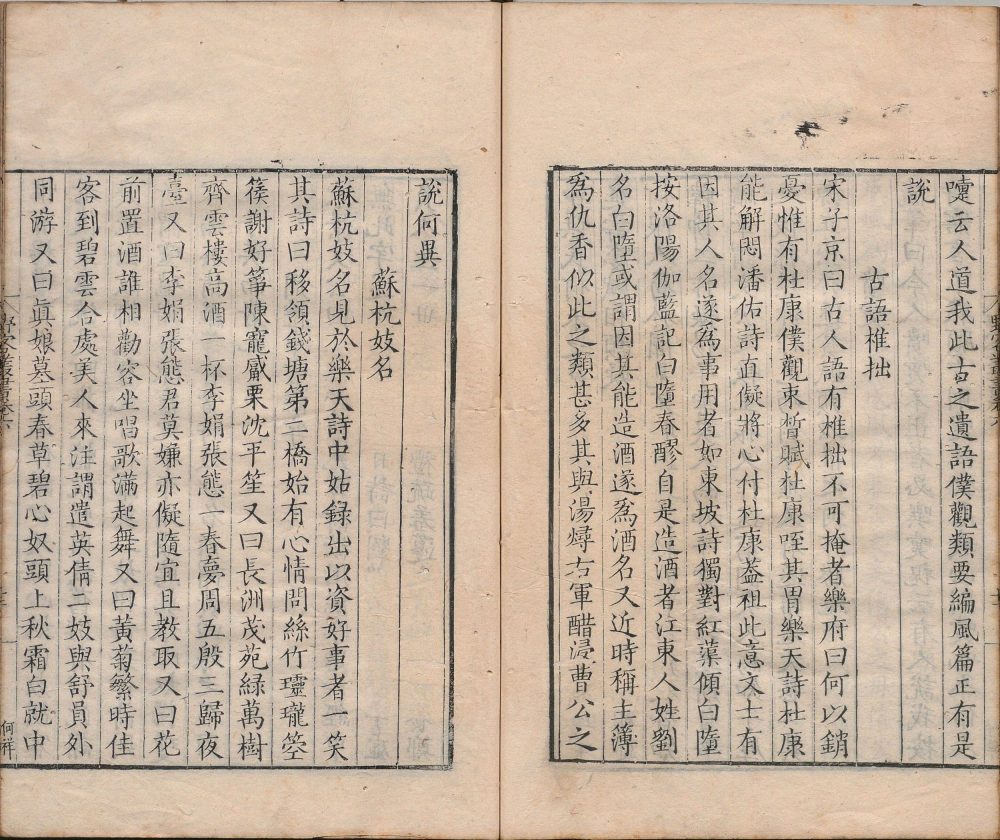 嚏云人道我此古之遺語僕觀類要編風篇正有是
說
古語椎拙
宋子京曰古人語有椎拙不可掩者樂府曰何以銷
憂惟有杜康僕觀束晳賦杜康咥其胃樂天詩杜康
能解悶潘佑詩直儗將心付杜康葢祖此意文士有
因其人名遂爲事用者如東坡詩獨對紅蕖傾白墮
按洛陽伽藍記白墮春醪自是造酒者江東人姓劉
名白墮或謂因其能造酒遂爲酒名又近時稱主簿
爲仇香似此之類甚多其與湯燖右軍醋浸曹公之
說何異
蘇杭妓名
蘇杭妓名見於樂天詩中姑錄出以資好事者一笑
其詩曰移領錢塘第二橋始有心情問絲竹瓏瓏箜
篌謝好箏陳寵觱栗沈平笙又曰長洲茂苑綠萬樹
齊雲樓高酒一杯李娟張態一春夢周五殷三歸夜
臺又曰李娟張態君莫嫌亦儗隨宜且教取又曰花
前置酒誰相勸容坐唱歌滿起舞又曰黃菊繁時佳
客到碧雲合處美人來注謂遣英倩二妓與舒員外
同游又曰眞娘墓頭春草碧心奴頭上秋霜白就中
何祥